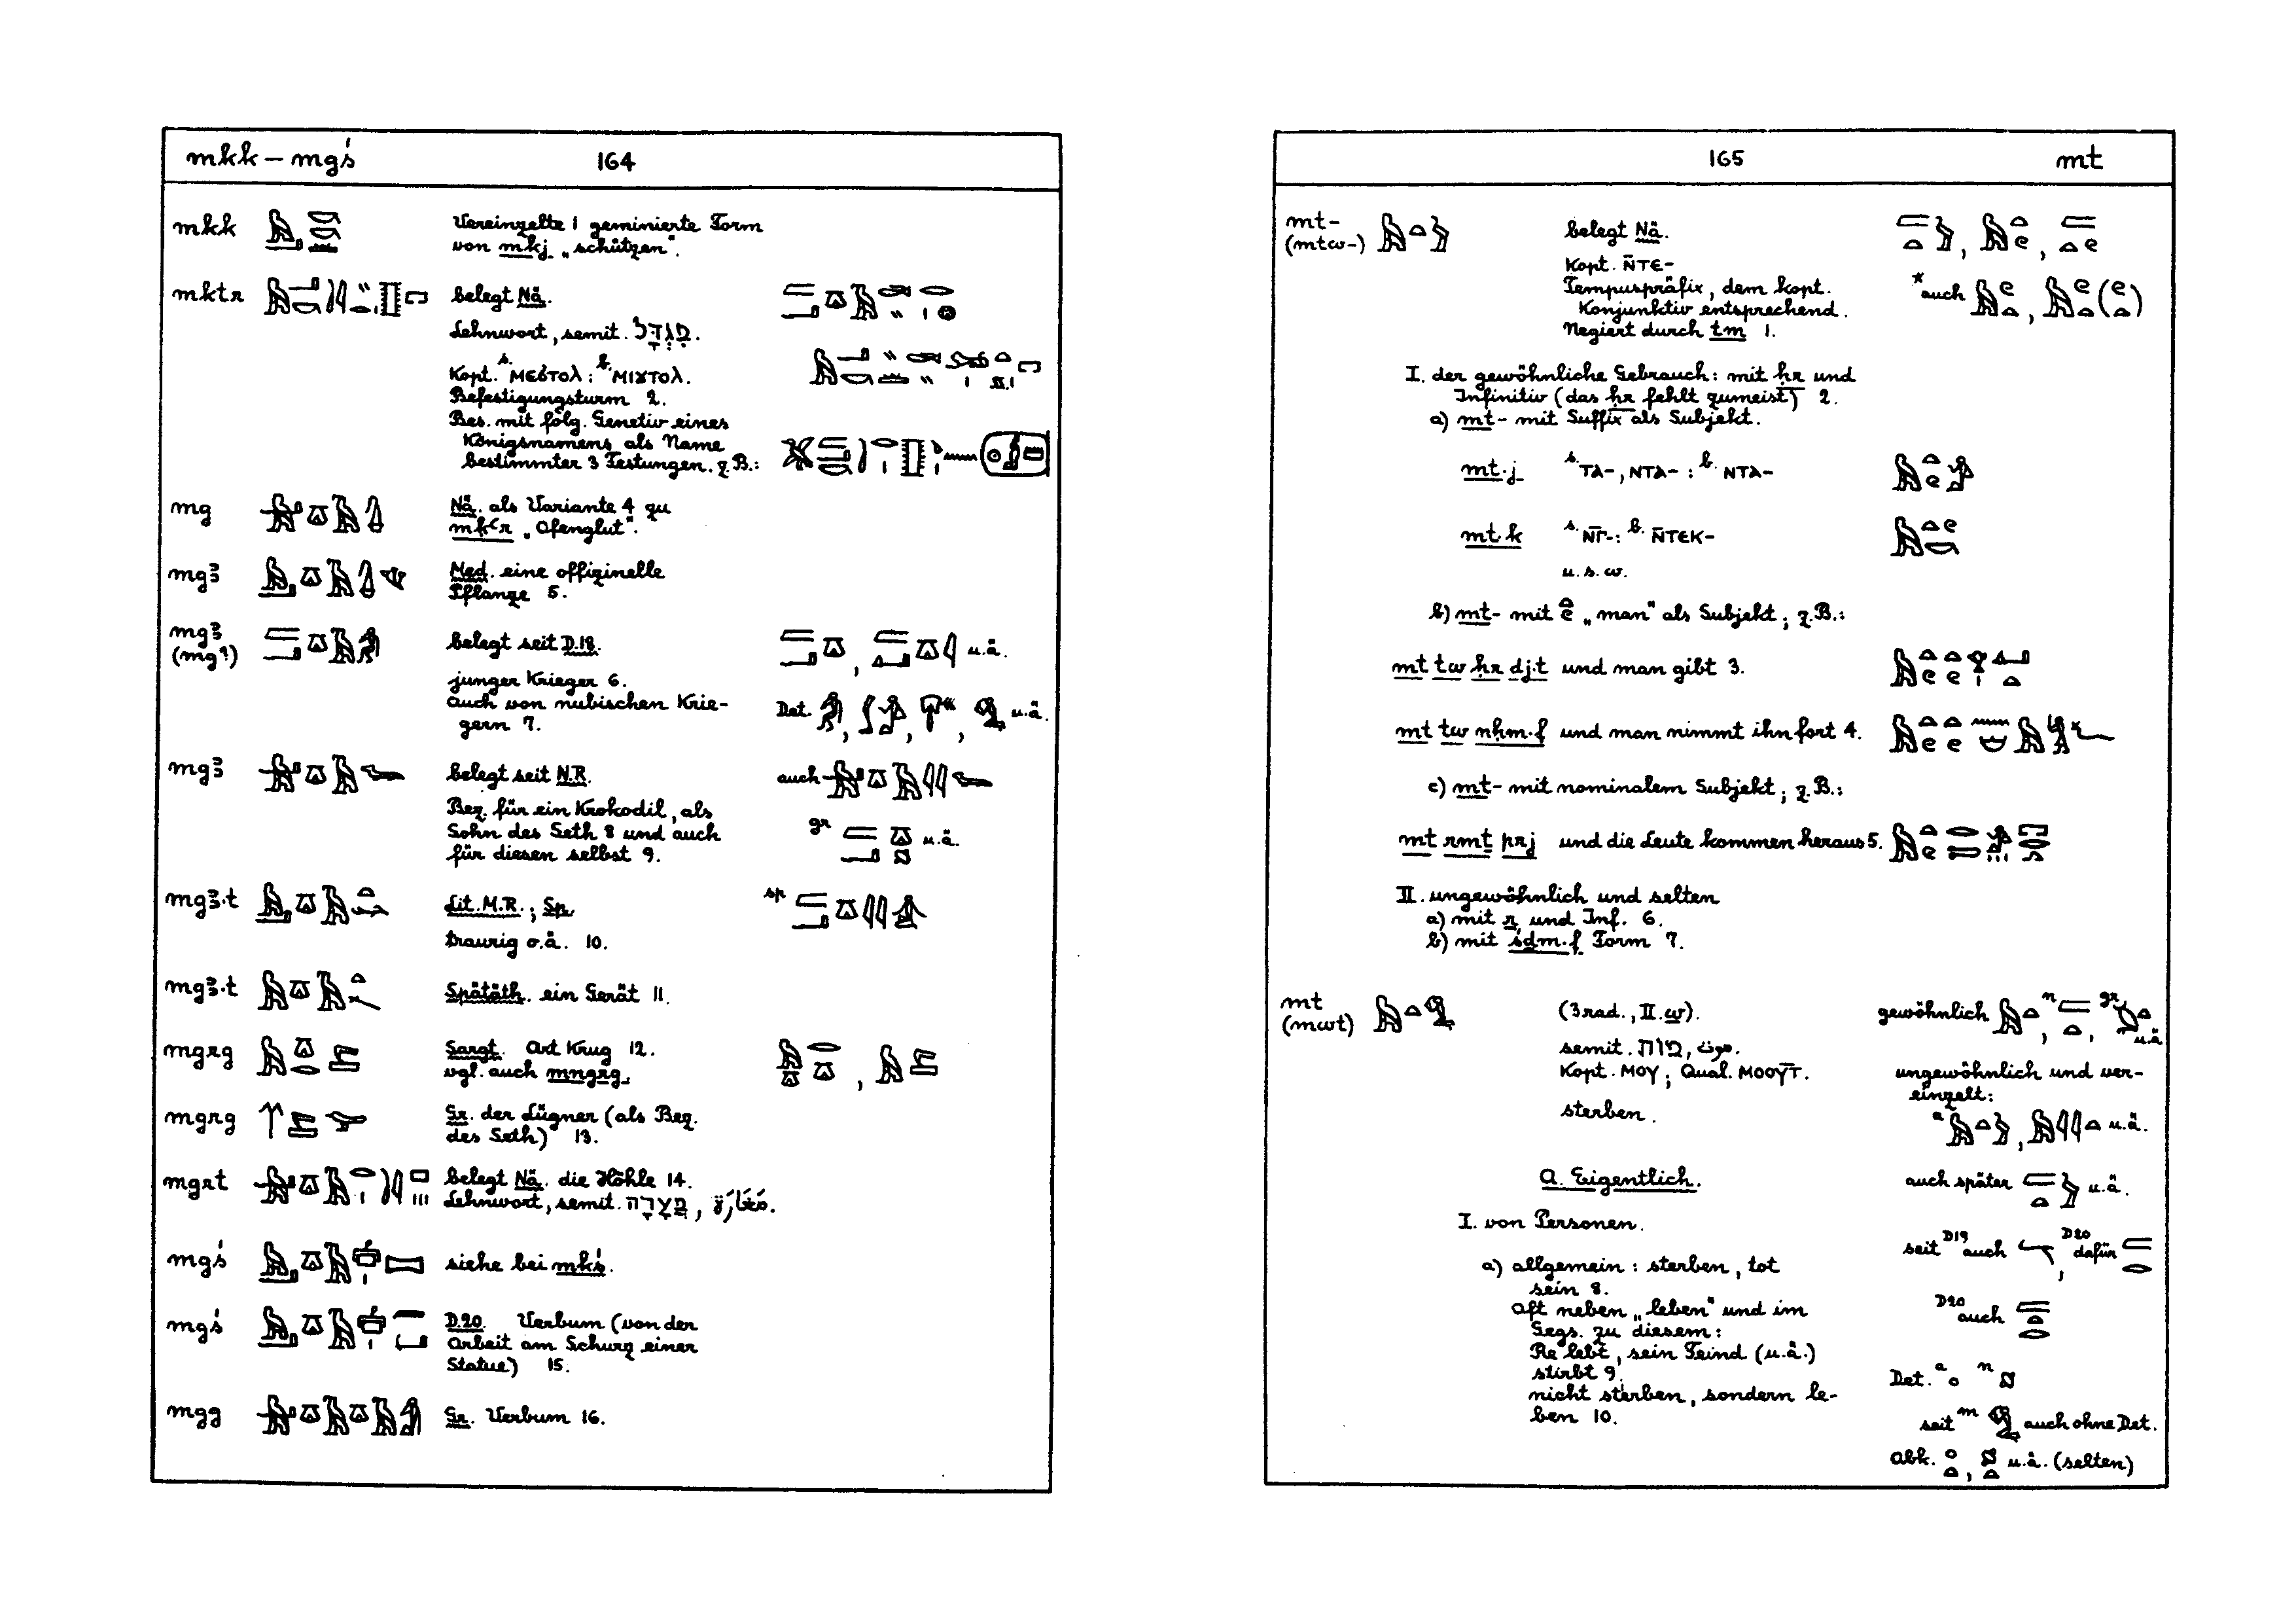 mkk – mgś 164
mkk Vereinzelte 1 geminierte Form
von mkj „schützen".
mktr belegt Nä.
Lehnwort, semit. מִגְדָּל.
Kopt. s. ⲙⲉϭⲧⲟⲗ : b. ⲙⲓϫⲧⲟⲗ.
Befestigungsturm 2.
Bes. mit folg. Genetiv eines
Königsnamens als Name
bestimmter 3 Festungen. z.B.:
mg Nä. als Variante 4 zu
„Ofenglut".
mgꜣ Med. eine offizinelle
Pflanze 5.
mgꜣ belegt seit D.18. u.ä.
(mg?)
junger Krieger 6.
Auch von nubischen Krie- Det. u.ä.
gern 7.
mgꜣ belegt seit N.R. auch
Bez. für ein Krokodil, als
Sohn des Seth 8 und auch gr u.ä.
für diesen selbst 9.
mgꜣ.t Lit. M.R.; Sp. sp
traurig o.ä. 10.
mgꜣ.t Spätäth. ein Gerät 11.
mgrg Sargt. Art Krug 12.
vgl. auch mngrg.
mgrg Gr. der Lügner (als Bez.
des Seth) 13.
mgrt belegt Nä. die Höhle 14.
Lehnwort, semit. מְעָרָה, مَغَارَة.
mgś siehe bei mkś.
mgś D.20. Verbum (von der
Arbeit am Schurz einer
Statue) 15.
mgg Gr. Verbum 16.
165 mt
mt- belegt Nä.
(mtw-)
Kopt. ⲛ̄ⲧⲉ-
Tempuspräfix, dem kopt. * auch
Konjunktiv entsprechend.
Negiert durch tm 1.
I. der gewöhnliche Gebrauch: mit ḥr und
Infinitiv (das ḥr fehlt zumeist) 2.
a) mt- mit Suffix als Subjekt.
mt.j s. ⲧⲁ-, ⲛⲧⲁ- : b. ⲛⲧⲁ-
mt.k s. ⲛⲅ̄-: b. ⲛ̄ⲧⲉⲕ-
u.s.w.
b) mt- mit „man" als Subjekt; z.B.:
mt tw ḥr dj.t und man gibt 3.
mt tw nḥm.f und man nimmt ihn fort 4.
c) mt- mit nominalem Subjekt; z.B.:
mt rmṯ prj und die Leute kommen heraus 5.
II. ungewöhnlich und selten
a) mit r und Inf. 6.
b) mit śḏm.f Form 7.
mt (3rad., II.w). gewöhnlich n gr u.ä.
(mwt)
semit. מוּת, موت.
Kopt. ⲙⲟⲩ; Qual. ⲙⲟⲟⲩⲧ̄. ungewöhnlich und ver-
einzelt:
sterben. a u.ä.
A. Eigentlich. auch später u.ä.
I. von Personen.
seit D19 auch , D20 dafür
a) allgemein: sterben, tot
sein 8.
Oft neben „leben" und im D20 auch
Gegs. zu diesem:
Re lebt, sein Feind (u.ä.)
stirbt 9. Det. a n
nicht sterben, sondern le-
ben 10. seit m auch ohne Det.
Abk. u.ä. (selten)